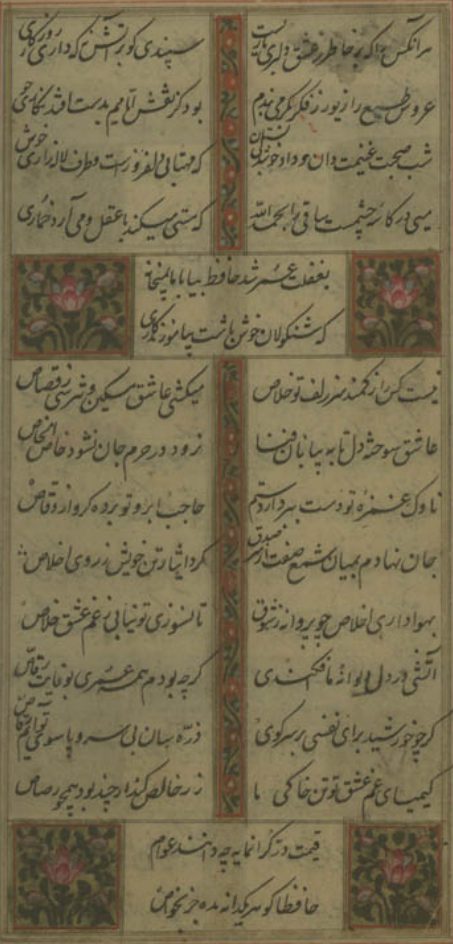 هرآنکس را که بر خاطر ز عشق دلبری بارست
سپندی کو بر آتش نه که داری روزکاری
عروس طبع را زیور ز فکر بکر می بندم
بود کز نقش ایامم بدست افتد نکاری خوش
شب صحبت غنیمت دان و داد خوشدلی بستان
که مهتابی دلفروزست و طرف لاله زاری خوش
میی در کاسه چشمست ساقی را بحمد الله
که مستی میکند با عقل و می آرد خماری
بغفلت عمر شد حافظ بیا با ما بمیخانه
که شنکولان خوش باشت بیاموزند کاری
نیست کس را ز کمند سر زلف تو خلاص
میکشی عاشق مسکین و نترسی ز قصاص
عاشق سوخته دل تا به بیابان فنا
نرود در حرم جان نشود خاص الخاص
ناوک غمزه تو دست ببرد از رستم
حاجب ابرو تو برده کرو از وقاص
جان نهادم بمیان شمع صفت از سر صدق
کرد ایثار تن خویش ز روی اخلاص
بهواداری اخلاص چو پروانه ز شوق
تا نسوزی تو نیابی ز غم عشق خلاص
آتشی در دل دیوانه ما فکندی
کرچه بودم همه عمری بهوایت رقاص
کر چو خورشید برای نفسی بر سر کوی
ذره سان بی سر و پا سوی تو آیم رقاص
کیمیای غم عشق تو تن خاکی ما
زر خالص کند ار چند بود همچو رصاص
قیمت در کرانمایه چه دانند عوام
حافظا کوهر یکدانه مده جز بخواص